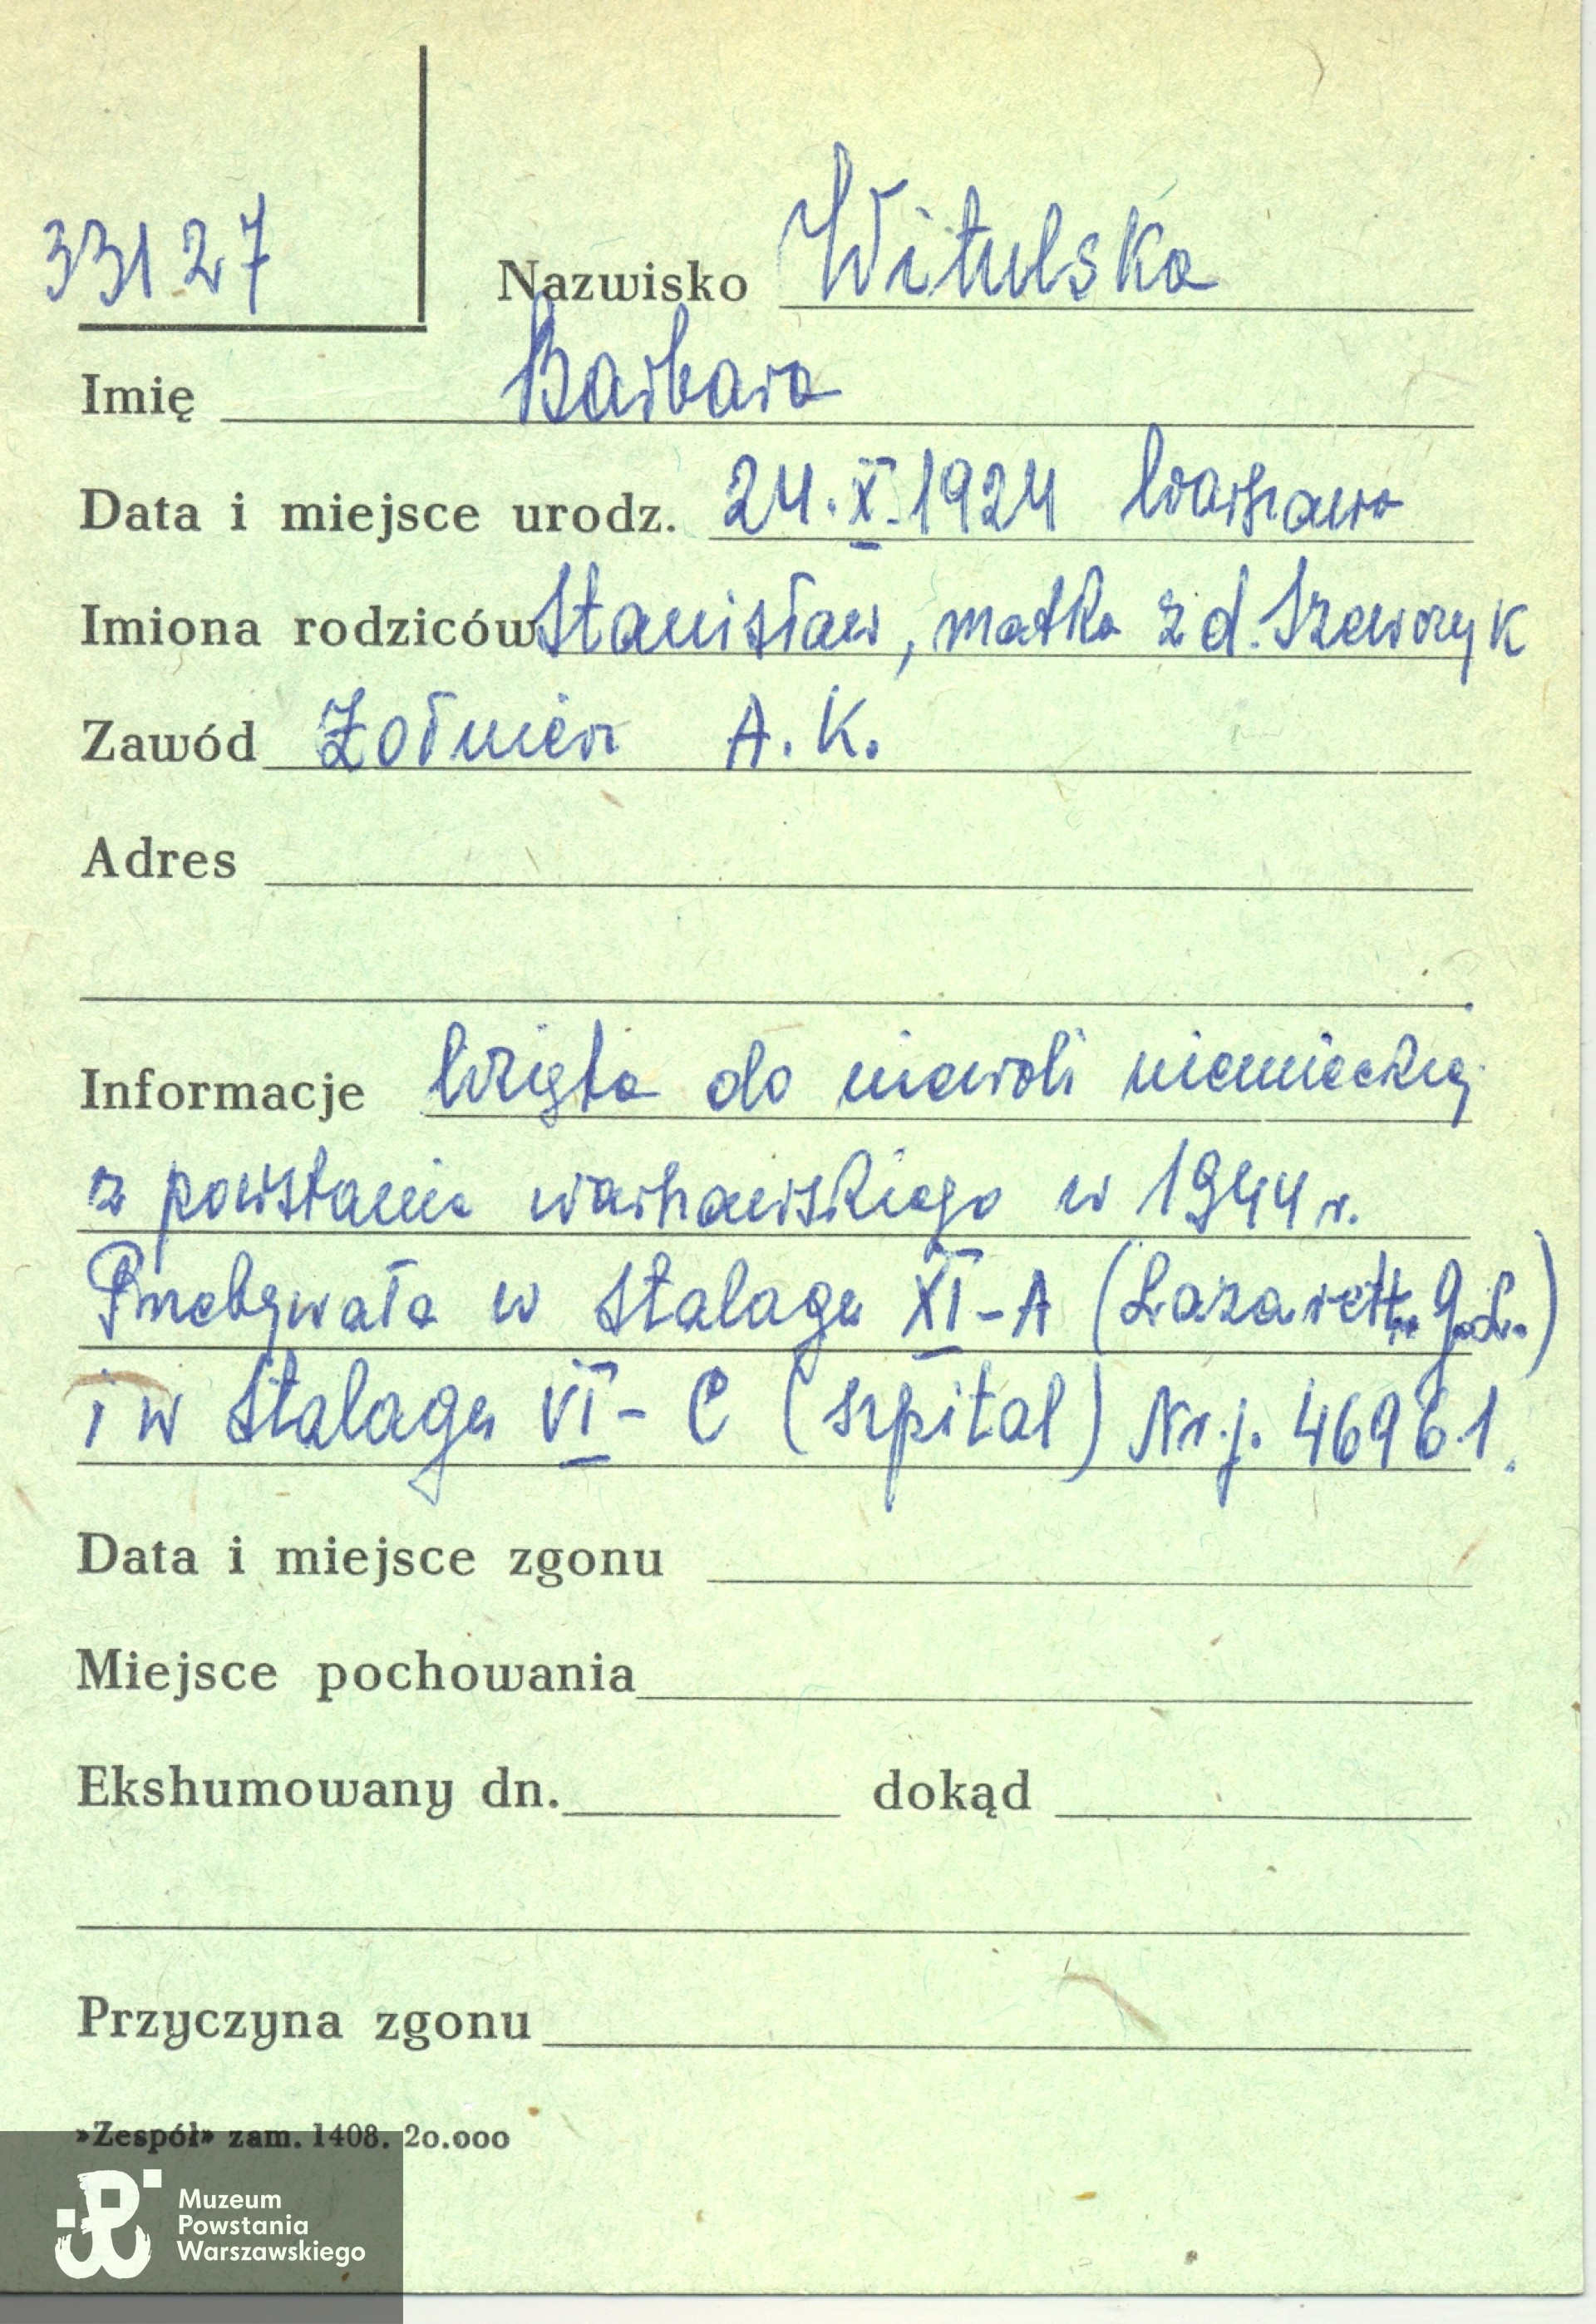 33127
Nazwisko Witulska
Imię Barbara
Data i miejsce urodz. 24.X.1924 Warszawa
Imiona rodziców Stanisław, matka z d. Szewczyk
Zawód Żołnierz A.K.
Adres
Informacje Wzięta do niewoli niemieckiej
z powstania warszawskiego w 1944 r.
Przebywała w Stalagu XI-A (Lazarett G.L.)
i w Stalagu VI-C (szpital) Nr.j. 46961.
Data i miejsce zgonu
Miejsce pochowania
Ekshumowany dn. dokąd
Przyczyna zgonu
»Zespół» zam. 1408. 20.000
Muzeum
Powstania
Warszawskiego